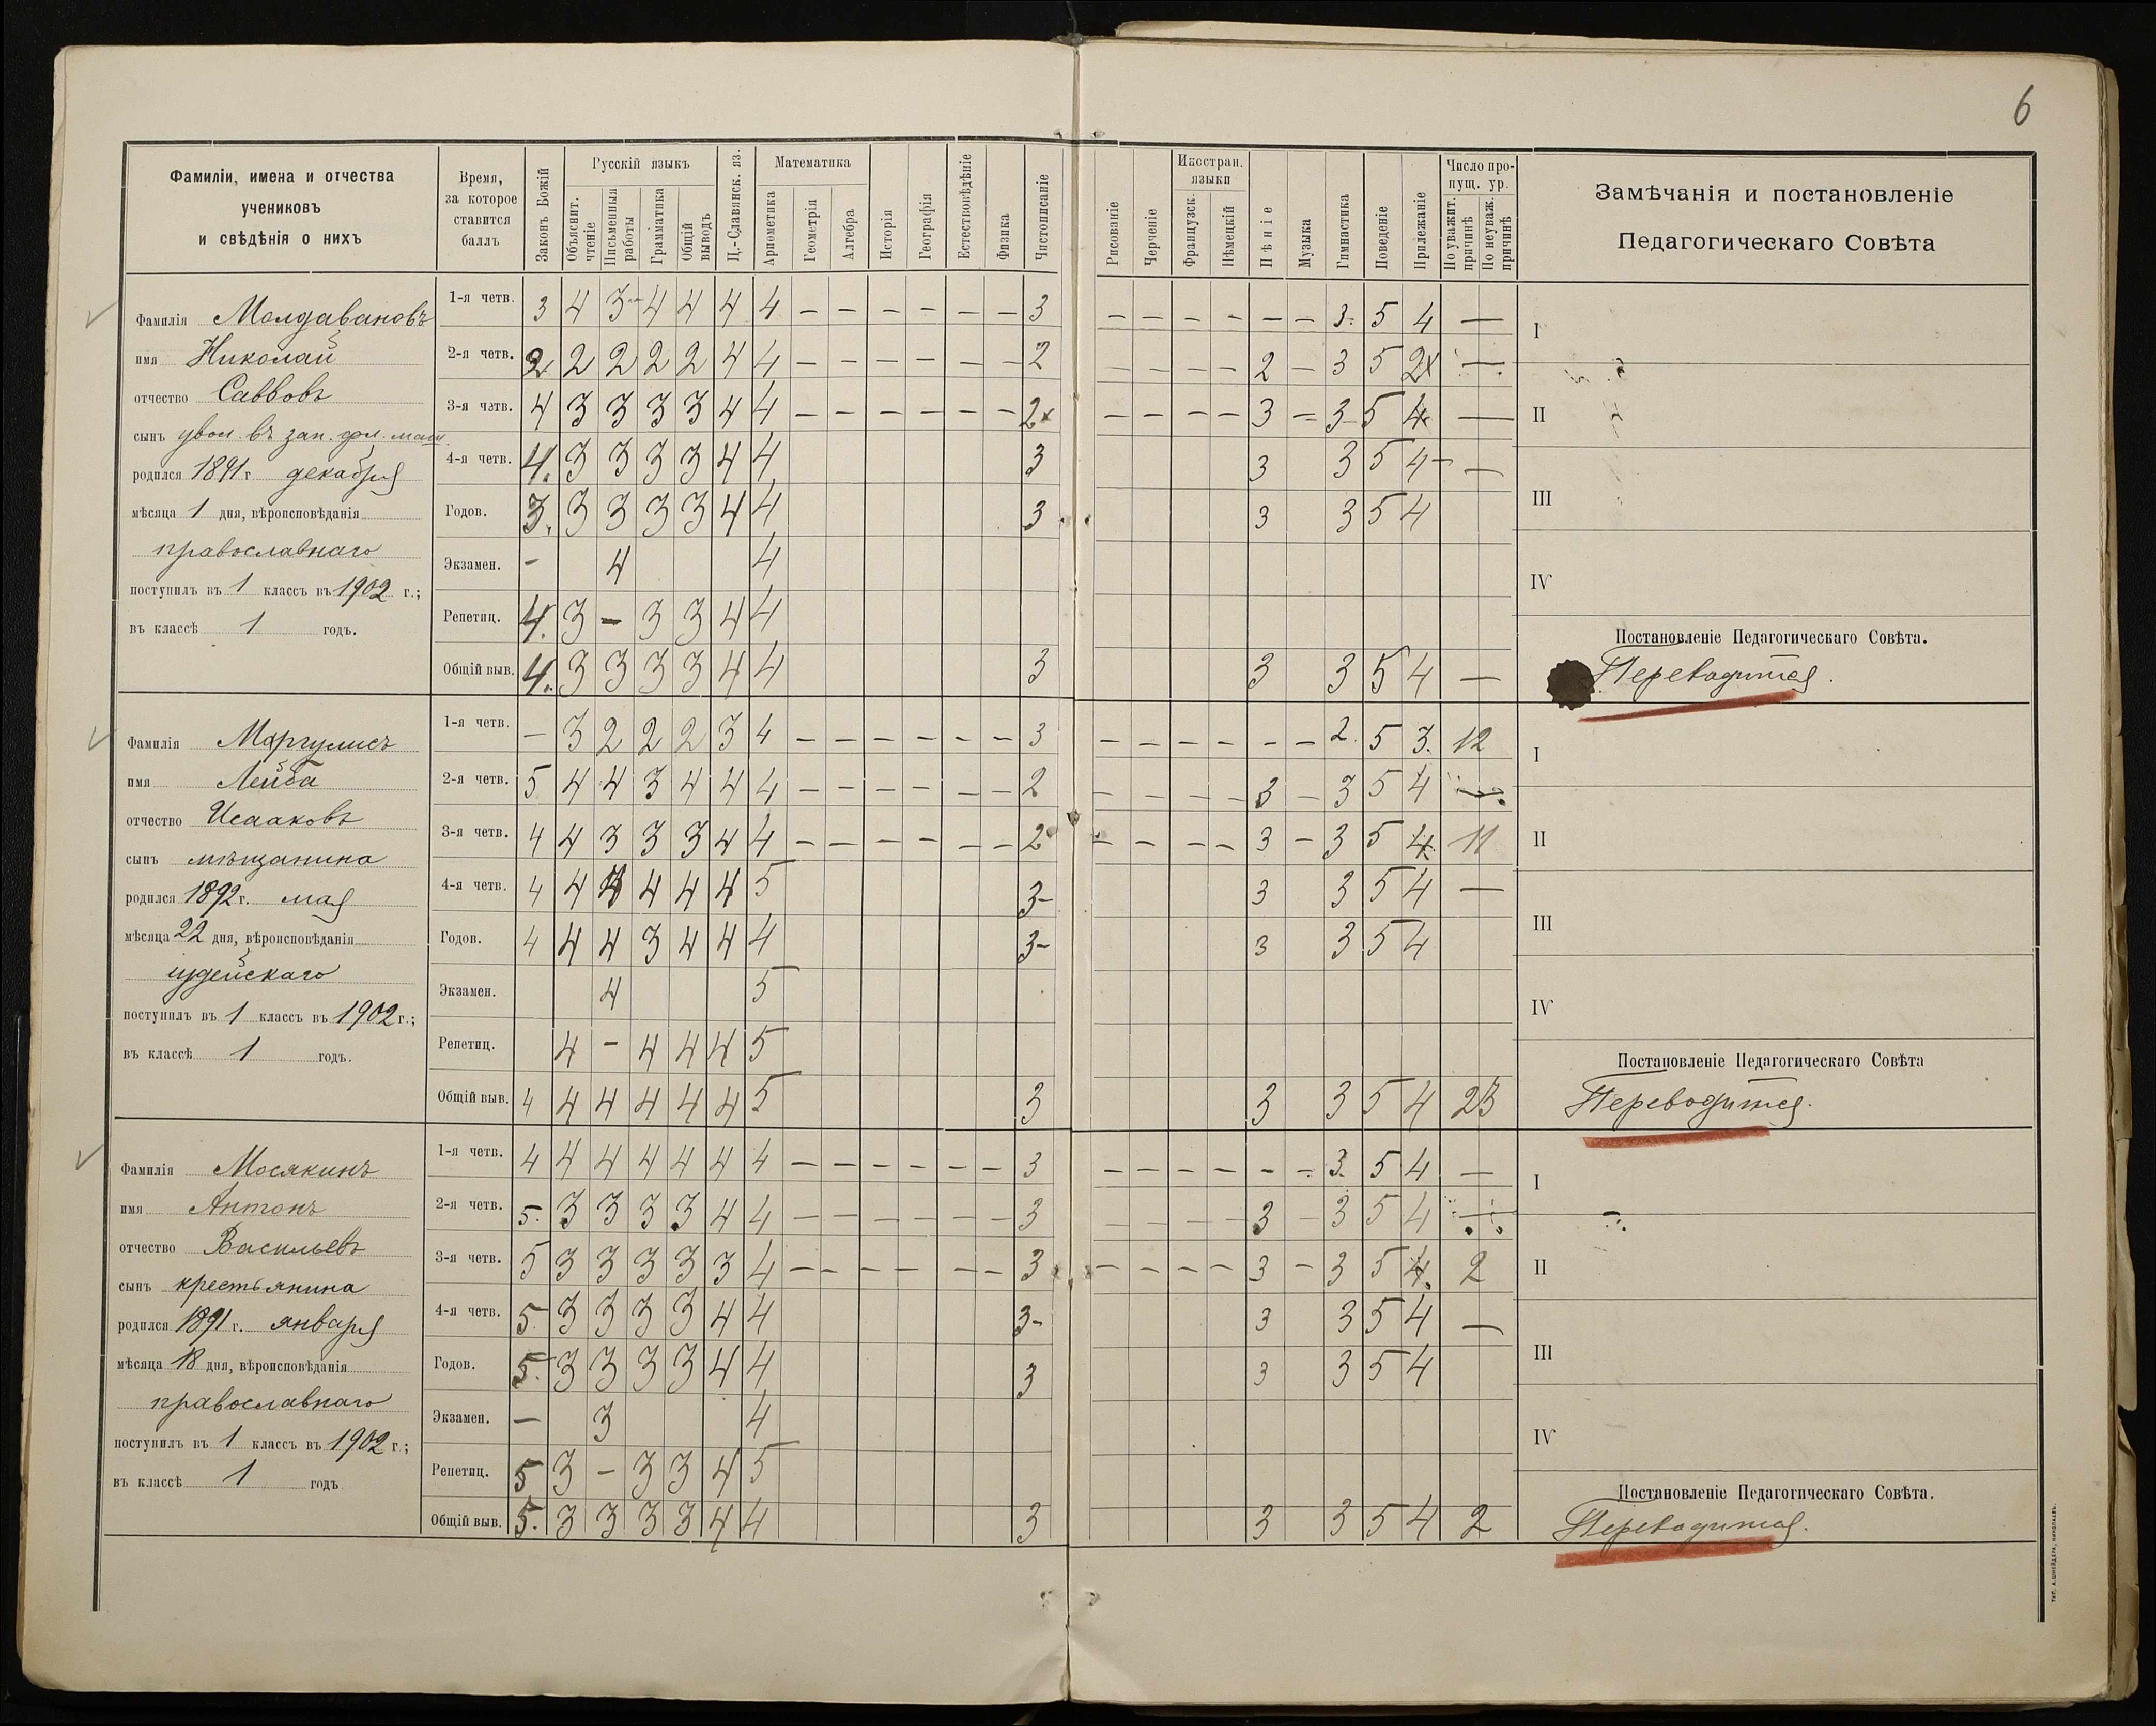 6
Фамиліи, имена и отчества
учениковъ
и свѣдѣнія о нихъ
Время,
за которое
ставится
баллъ
Законъ Божій
Русскій языкъ
Объяснит. чтеніе
Письменныя работы
Грамматика
Общій выводъ
Ц.-Славянск. яз.
Математика
Арифметика
Геометрія
Алгебра
Исторія
Географія
Естествовѣдѣніе
Физика
Чистописаніе
Рисованіе
Черченіе
Иностран. языки
Французск.
Нѣмецкій
Пѣніе
Музыка
Гимнастика
Поведеніе
Прилежаніе
Число про-
пущ. ур.
По уважит. причинѣ
По неуваж. причинѣ
Замѣчанія и постановленіе
Педагогическаго Совѣта
Фамилія Молдавановъ
имя Николай
отчество Саввовъ
сынъ увол. въ зап. фл. маш.
родился 1891 г. декабря
мѣсяца 1 дня, вѣроисповѣданія
православнаго
поступилъ въ 1 классъ въ 1902 г.;
въ классѣ 1 годъ.
1-я четв. 3 4 3- 4 4 4 4 – – – – – – 3 – – – – – – 3. 5 4 —
2-я четв. 2 2 2 2 2 4 4 – – – – – – 2 – – – – 2 – 3 5 2 —
3-я четв. 4 3 3 3 3 4 4 – – – – – – 2 – – – – 3 – 3 5 4 —
4-я четв. 4. 3 3 3 3 4 4 3 3 3 5 4 —
Годов. 3. 3 3 3 3 4 4 3 3 3 5 4
Экзамен. – 4 4
Репетиц. 4. 3 – 3 3 4 4
Общій выв. 4. 3 3 3 3 4 4 3 3 3 5 4 —
I
II
III
IV
Постановленіе Педагогическаго Совѣта.
Переводится.
Фамилія Моргулисъ
имя Лейба
отчество Исааковъ
сынъ мѣщанина
родился 1892 г. мая
мѣсяца 22 дня, вѣроисповѣданія
іудейскаго
поступилъ въ 1 классъ въ 1902 г.;
въ классѣ 1 годъ.
1-я четв. – 3 2 2 2 3 4 – – – – – – 3 – – – – – – 2. 5 3. 12
2-я четв. 5 4 4 3 4 4 4 – – – – – – 2 – – – – 3 – 3 5 4 —
3-я четв. 4 4 3 3 3 4 4 – – – – – – 2 – – – – 3 – 3 5 4 11
4-я четв. 4 4 4 4 4 4 5 3- 3 3 5 4 —
Годов. 4 4 4 3 4 4 4 3- 3 3 5 4
Экзамен. 4 5
Репетиц. 4 – 4 4 4 5
Общій выв. 4 4 4 4 4 4 5 3 3 3 5 4 23
I
II
III
IV
Постановленіе Педагогическаго Совѣта
Переводится.
Фамилія Мосякинъ
имя Антонъ
отчество Васильевъ
сынъ крестьянина
родился 1891 г. января
мѣсяца 18 дня, вѣроисповѣданія
православнаго
поступилъ въ 1 классъ въ 1902 г.;
въ классѣ 1 годъ.
1-я четв. 4 4 4 4 4 4 4 – – – – – – 3 – – – – – – 3. 5 4 —
2-я четв. 5. 3 3 3 3 4 4 – – – – – – 3 – – – – 3 – 3 5 4 —
3-я четв. 5 3 3 3 3 3 4 – – – – – – 3 – – – – 3 – 3 5 4. 2
4-я четв. 5 3 3 3 3 4 4 3- 3 3 5 4 —
Годов. 5. 3 3 3 3 4 4 3 3 3 5 4
Экзамен. — 3 4
Репетиц. 5 3 – 3 3 4 5
Общій выв. 5. 3 3 3 3 4 4 3 3 3 5 4 2
I
II
III
IV
Постановленіе Педагогическаго Совѣта.
Переводится.
ТИП. А. ШНЕЙДЕРА, НИКОЛАЕВЪ.